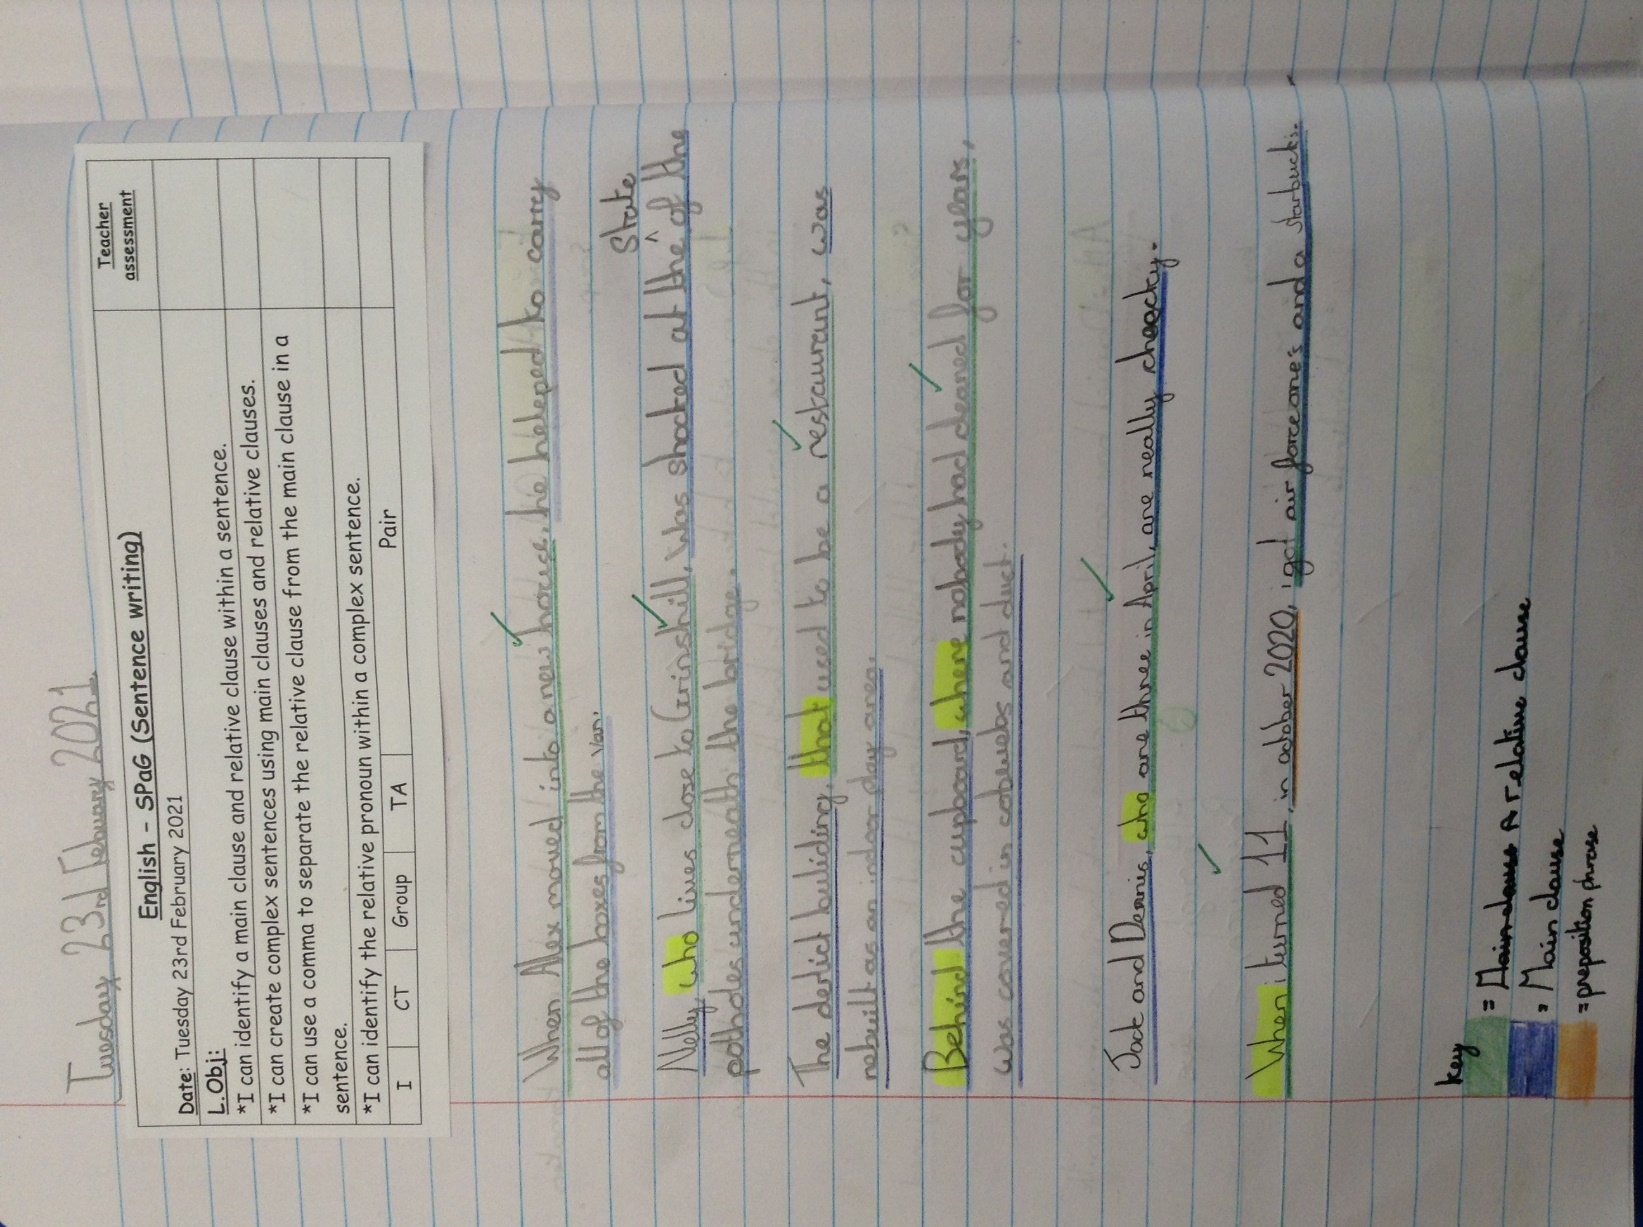 Tuesday 23rd February 2021
English – SPaG (Sentence writing)
Teacher assessment
Date: Tuesday 23rd February 2021
L.Obj:
*I can identify a main clause and relative clause within a sentence.
*I can create complex sentences using main clauses and relative clauses.
*I can use a comma to separate the relative clause from the main clause in a
sentence.
*I can identify the relative pronoun within a complex sentence.
I CT Group TA Pair
When Alex moved into a new house, he heleped to carry
all of the boxes from the van.
State
Nelly, who lives close to Grinshill, was shocked at the ^ of the
potholes underneath the bridge.
The derlict building, that used to be a restaurant, was
rebuilt as an indoor play area.
Behind the cupboard, where nobody had cleaned for years,
was covered in cobwebs and dust.
Jack and Dennis, who are three in April, are really cheacky.
When i turned 11, in october 2020, i got air forceone's and a starbucks.
key
= Main clause A relative clause
= Main clause
= preposition phrase